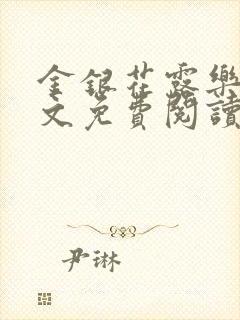 金銀花露樂
文免費閱讀
尹琳